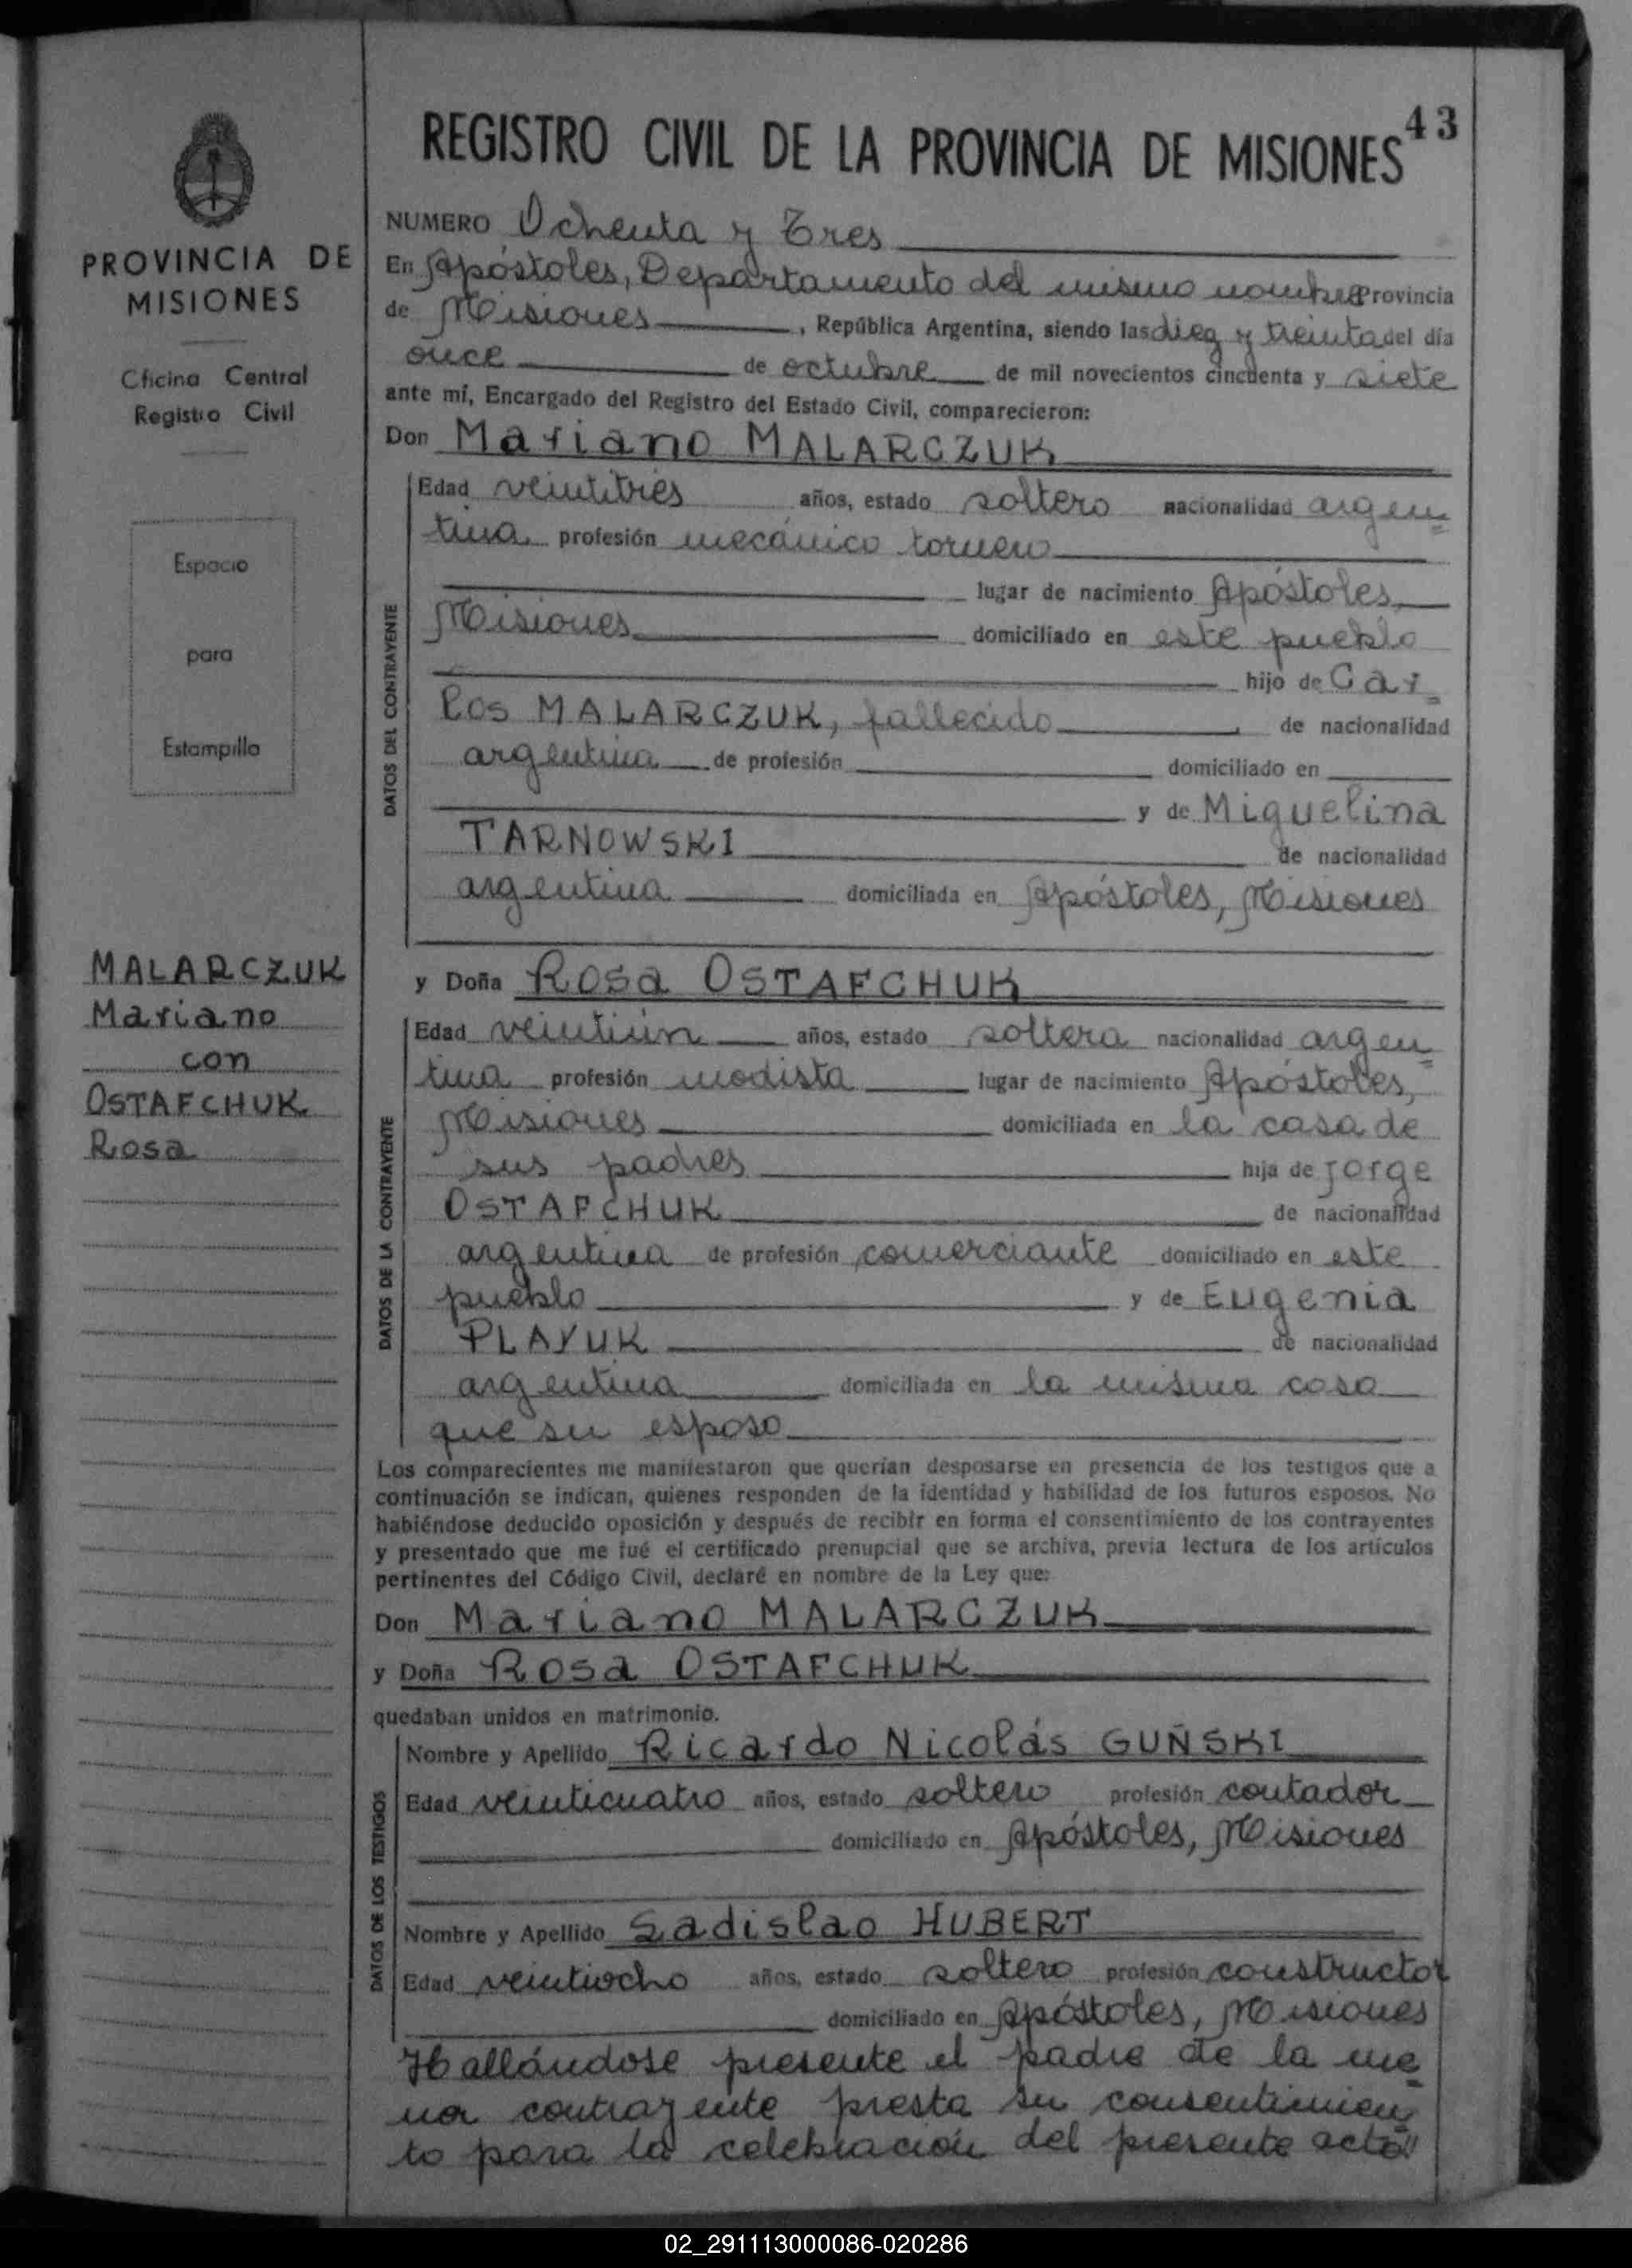 43
REGISTRO CIVIL DE LA PROVINCIA DE MISIONES
PROVINCIA DE
MISIONES
Oficina Central
Registro Civil
Espacio
para
Estampilla
MALARCZUK
Mariano
con
OSTAFCHUK
Rosa
NUMERO Ochenta y Tres
En Apóstoles, Departamento del mismo nombre Provincia
de Misiones, República Argentina, siendo las diez y treinta del día
once de octubre de mil novecientos cincuenta y siete
ante mí, Encargado del Registro del Estado Civil, comparecieron:
Don Mariano MALARCZUK
DATOS DEL CONTRAYENTE
Edad veintitrés años, estado soltero nacionalidad argen=
tina profesión mecánico tornero
lugar de nacimiento Apóstoles,
Misiones domiciliado en este pueblo
hijo de Car=
los MALARCZUK, fallecido de nacionalidad
argentina de profesión domiciliado en
y de Miguelina
TARNOWSKI de nacionalidad
argentina domiciliada en Apóstoles, Misiones
y Doña Rosa OSTAFCHUK
DATOS DE LA CONTRAYENTE
Edad veintiún años, estado soltera nacionalidad argen=
tina profesión modista lugar de nacimiento Apóstoles,
Misiones domiciliada en la casa de
sus padres hija de Jorge
OSTAFCHUK de nacionalidad
argentina de profesión comerciante domiciliado en este
pueblo y de Eugenia
PLAYUK de nacionalidad
argentina domiciliada en la misma casa
que su esposo
Los comparecientes me manifestaron que querían desposarse en presencia de los testigos que a
continuación se indican, quienes responden de la identidad y habilidad de los futuros esposos. No
habiéndose deducido oposición y después de recibir en forma el consentimiento de los contrayentes
y presentado que me fué el certificado prenupcial que se archiva, previa lectura de los artículos
pertinentes del Código Civil, declaré en nombre de la Ley que:
Don Mariano MALARCZUK
y Doña Rosa OSTAFCHUK
quedaban unidos en matrimonio.
DATOS DE LOS TESTIGOS
Nombre y Apellido Ricardo Nicolás GUÑSKI
Edad veinticuatro años, estado soltero profesión contador
domiciliado en Apóstoles, Misiones
Nombre y Apellido Ladislao HUBERT
Edad veintiocho años, estado soltero profesión constructor
domiciliado en Apóstoles, Misiones
Hallándose presente el padre de la me=
nor contrayente presta su consentimien=
to para la celebración del presente acto."
02_291113000086-020286